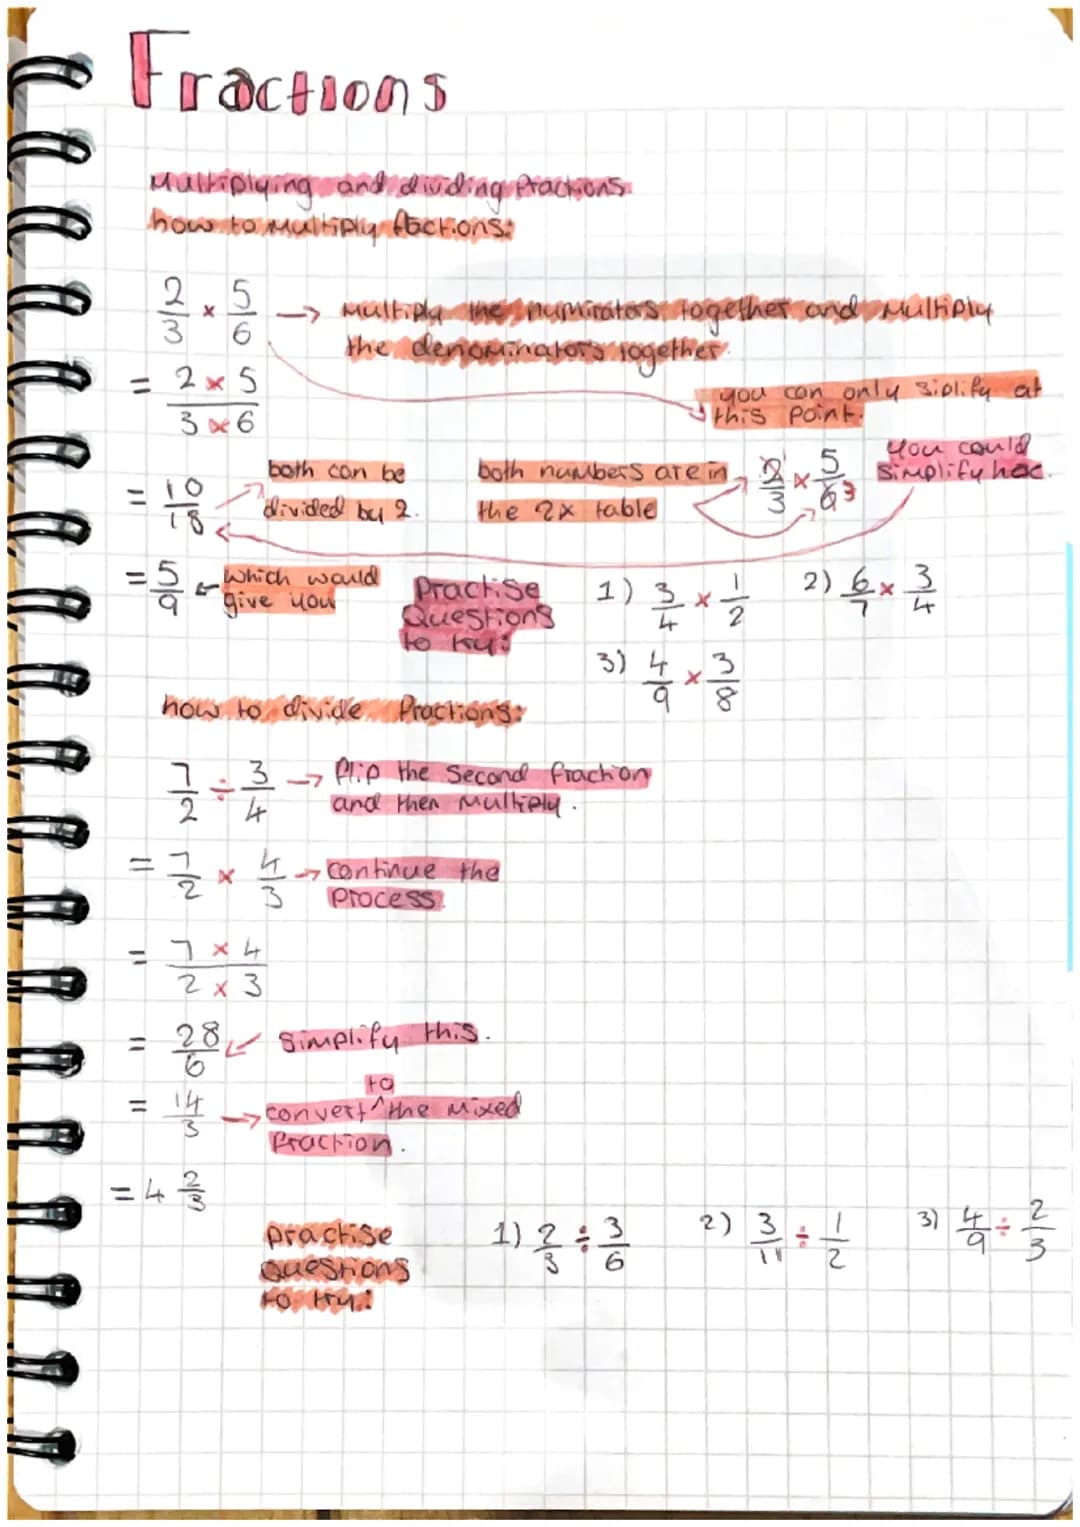 Fractions
Multiplying and dividing fractions
how to multiply factions:
2/3 × 5/6 → Multiply the numirators together and multiply
the denominators together.
= 2 × 5 / 3 × 6
you can only siplify at
this point.
= 10/18
both can be
divided by 2.
both numbers are in
the 2x table
2/3 × 5/6 3
you could
simplify here.
= 5/9 ← which would
give you
Practise
Questions
to try:
1) 3/4 × 1/2
2) 6/7 × 3/4
3) 4/9 × 3/8
how to divide fractions:
7/2 ÷ 3/4 → flip the second fraction
and then multiply.
= 7/2 × 4/3 → continue the
process.
= 7 × 4 / 2 × 3
= 28/6 ← simplify this.
= 14/3 → convert ^to the mixed
fraction.
= 4 2/3
practise
questions
to try:
1) 2/3 ÷ 3/6
2) 3/11 ÷ 1/2
3) 4/9 ÷ 2/3